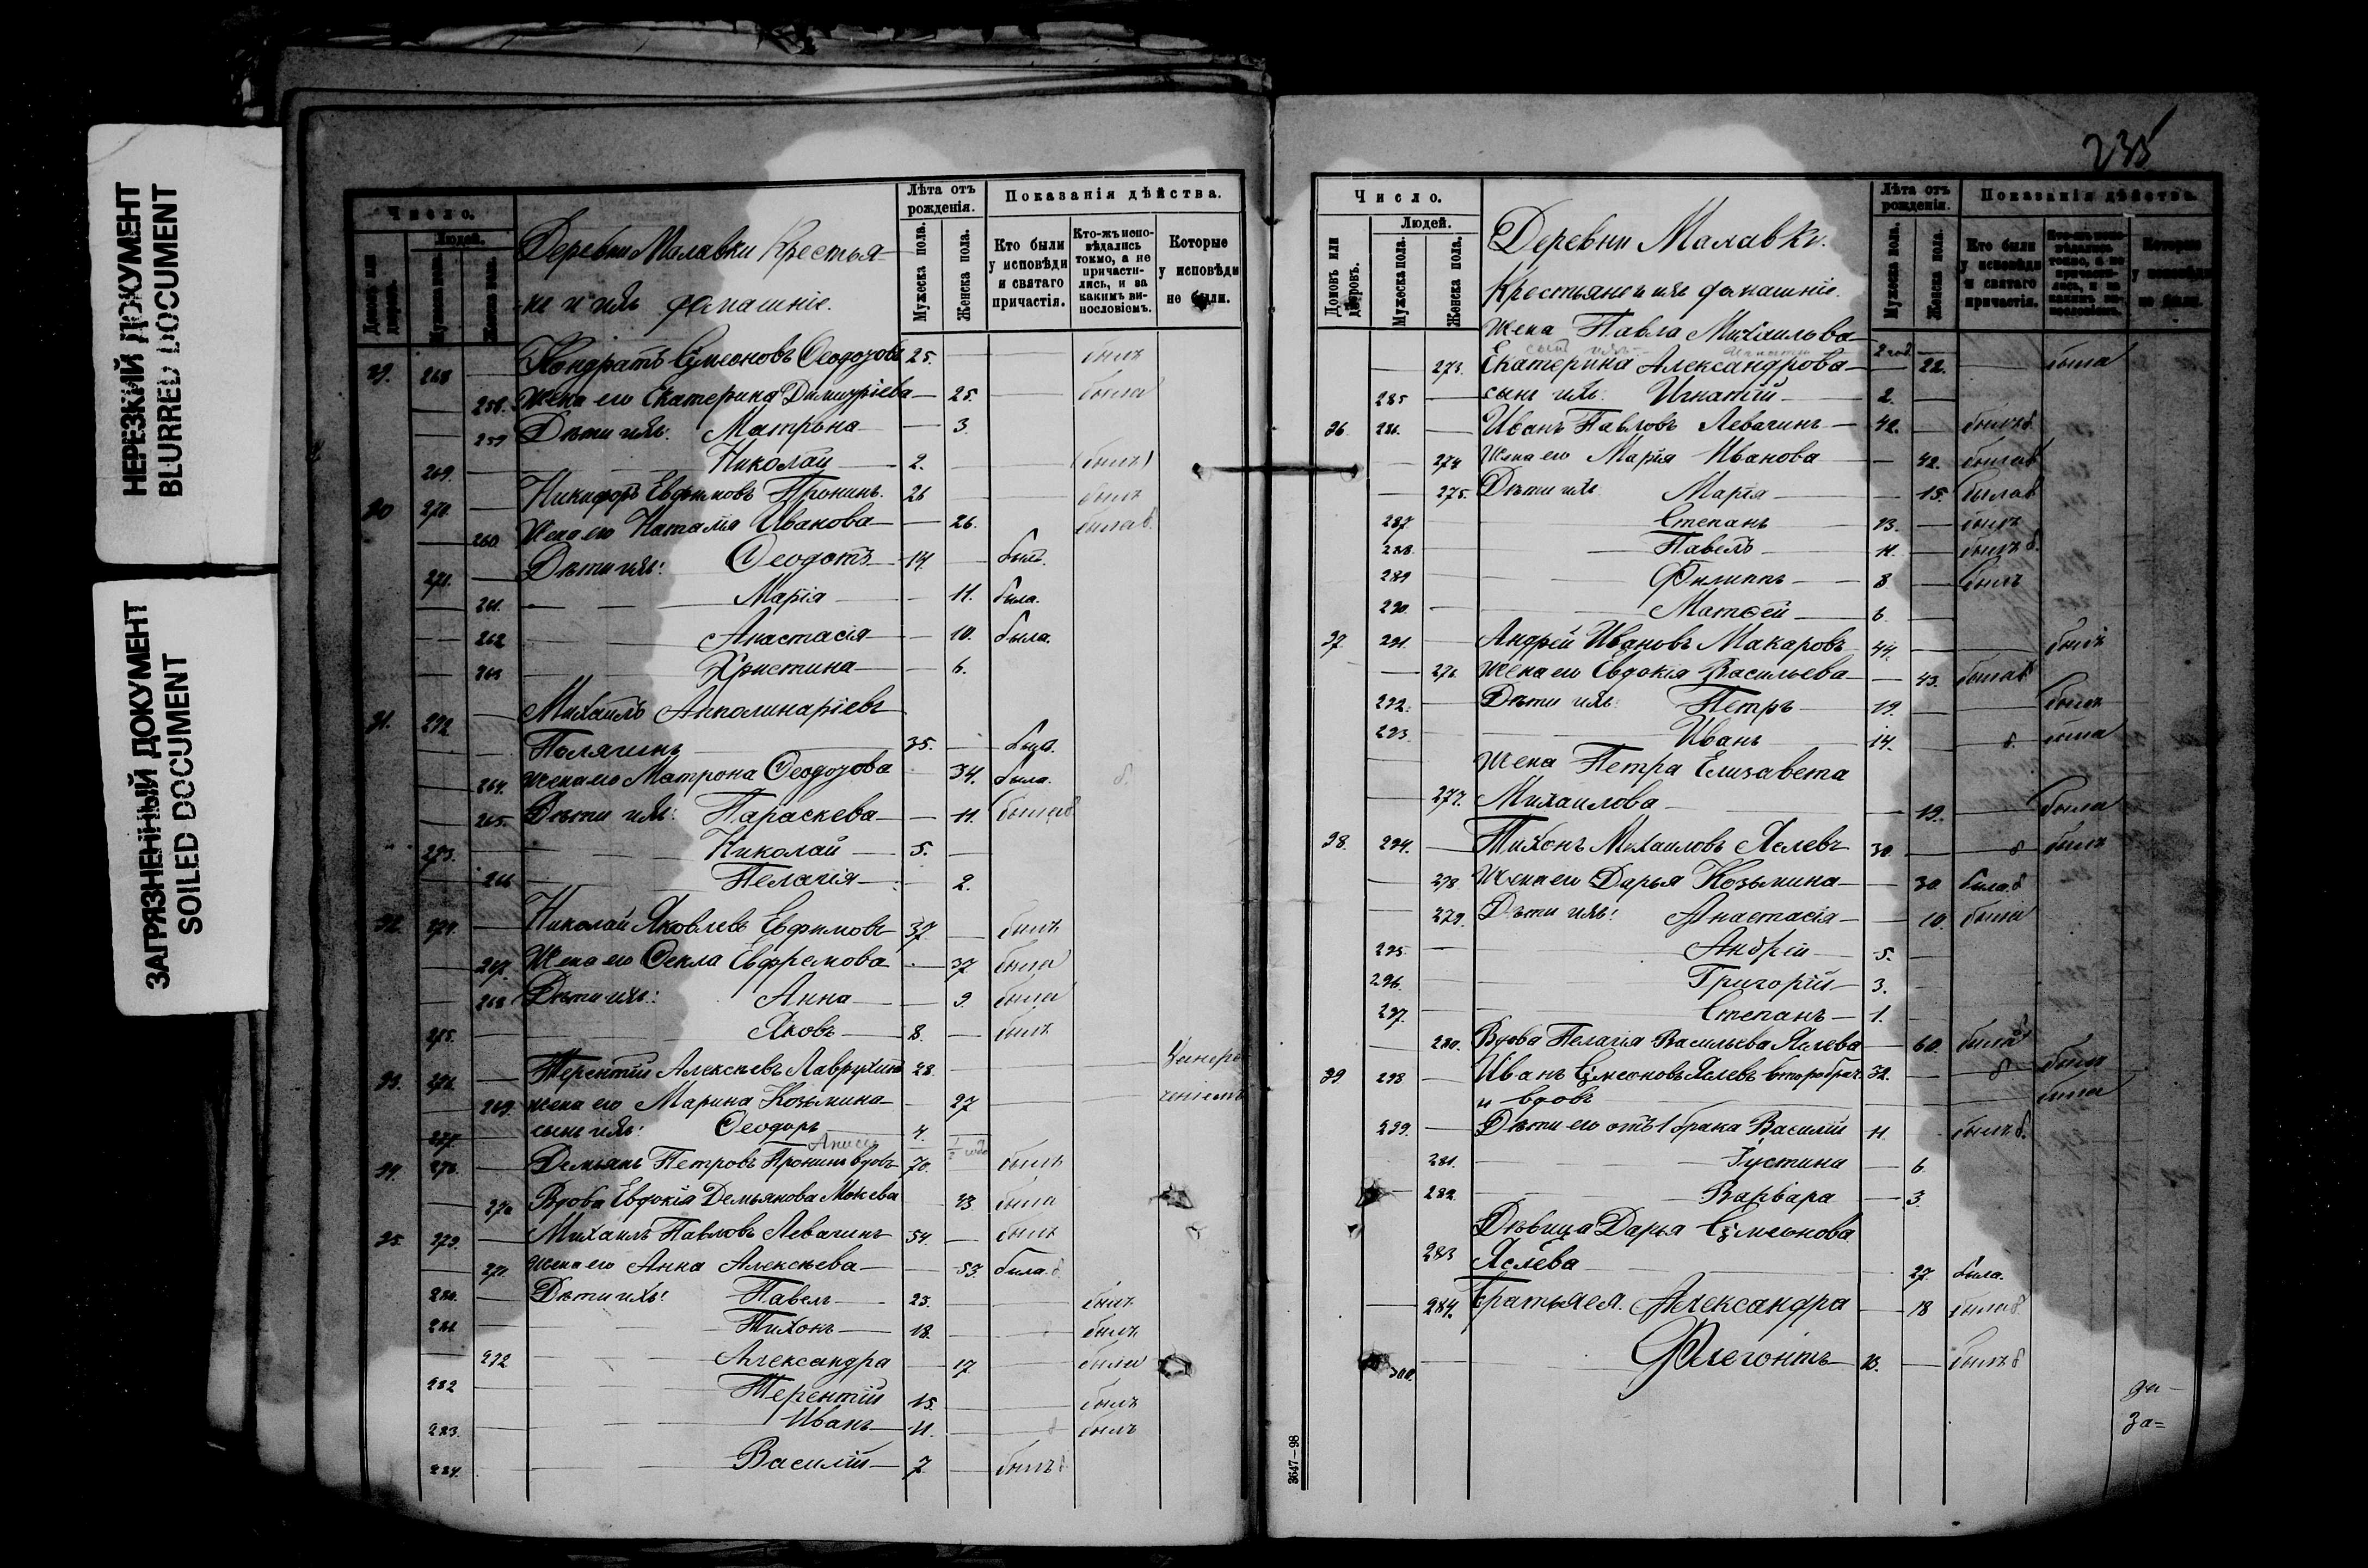 НЕРЕЗКИЙ ДОКУМЕНТ
BLURRED DOCUMENT
ЗАГРЯЗНЕННЫЙ ДОКУМЕНТ
SOILED DOCUMENT
Число.
Людей.
Домовъ или дворовъ.
Мужеска пола.
Женска пола.
Деревни Малавки Крестья-
не и ихъ домашніе.
Лѣта отъ рожденія.
Мужеска пола.
Женска пола.
Показанія дѣйства.
Кто были у исповѣди и святаго причастія.
Кто-жъ исповѣдались токмо, а не причастились, и за какимъ винословіемъ.
Которые у исповѣди не были.
29. 268 Кондратъ Сѵмеоновъ Ѳеодозовъ 25. былъ
258. Жена его Екатерина Димитріева 25. была
259 Дѣти ихъ: Матрона 3.
269. Николай 2. (былъ)
30 270. Никифоръ Евфимовъ Пронинъ. 26 былъ
260. Жена его Наталія Иванова 26. была б.
271. Дѣти ихъ: Ѳеодотъ 14 былъ.
261. Марія 11. была.
262 Анастасія 10. была.
263 Христина 6.
31. 272 Михаилъ Апполинаріевъ
Полягинъ 35. былъ.
264. Жена его Матрона Ѳеодозова 34. была. б.
265. Дѣти ихъ: Параскева 11. была б
273. Николай 5.
266 Пелагія 2.
32. 274. Николай Яковлевъ Евфимовъ 37 былъ
267. Жена его Ѳекла Евфремова 37 была
268 Дѣти ихъ: Анна 9 была
275. Яковъ 8. былъ
33. 276. Терентій Алексѣевъ Лаврухинъ 28.
269. Жена его Марина Козьмина 27
277. сынъ ихъ: Ѳеодоръ 4.
34. 278. Демьянъ Петровъ Пронинъ вдовъ 70. былъ
270 Вдова Евдокія Демьянова Мокева 43. была
35. 279. Михаилъ Павловъ Левагинъ 54. былъ
271. Жена его Анна Алексѣева 53. была. б
280. Дѣти ихъ: Павелъ 23. былъ
281 Тихонъ 18. былъ
272 Александра 17. была
282 Терентій 15. былъ
283. Иванъ 11. былъ
284. Василій 7 былъ б
235
Число.
Людей.
Домовъ или дворовъ.
Мужеска пола.
Женска пола.
Деревни Малавки.
Крестьяне и ихъ домашніе.
Лѣта отъ рожденія.
Мужеска пола.
Женска пола.
Показанія дѣйства.
Кто были у исповѣди и святаго причастія.
Кто-жъ исповѣдались токмо, а не причастились, и за какимъ винословіемъ.
Которые у исповѣди не были.
Жена Павла Михаилова
273. Екатерина Александрова 22. была
285 сынъ ихъ: Игнатій 2.
36 286. Иванъ Павловъ Левагинъ 42. былъ б.
274 Жена его Марія Иванова 42. была б
275. Дѣти ихъ Марія 15. была б
287 Степанъ 13. былъ
288. Павелъ 11. былъ б.
289 Филиппъ 8 былъ
290. Матѳей 6
37 291. Андрей Ивановъ Макаровъ 44. былъ
276. Жена его Евдокія Васильева 43. была б
292. Дѣти ихъ: Петръ 19. былъ
293. Иванъ 14. б.
Жена Петра Елизавета
277. Михаилова 19. была
38. 294. Тихонъ Михаиловъ Яслевъ 30. б былъ
278 Жена его Дарья Козьмина 30. была. б
279. Дѣти ихъ: Анастасія 10. была
295. Андрей 5.
296. Григорій 3.
297. Степанъ 1.
280. Вдова Пелагія Васильева Яслева 60. была б
39 298 Иванъ Сѵмеоновъ Яслевъ второбрач. 32. б
и вдовъ
299. Дѣти его отъ 1 брака Василій 11. былъ б.
281. Іустина 6
282. Варвара 3
Дѣвица Дарья Сѵмеонова
283 Яслева 27. была.
284. Братья ея. Александра 18 была б
300. Флегонтъ 13. былъ б
за=
3647—98